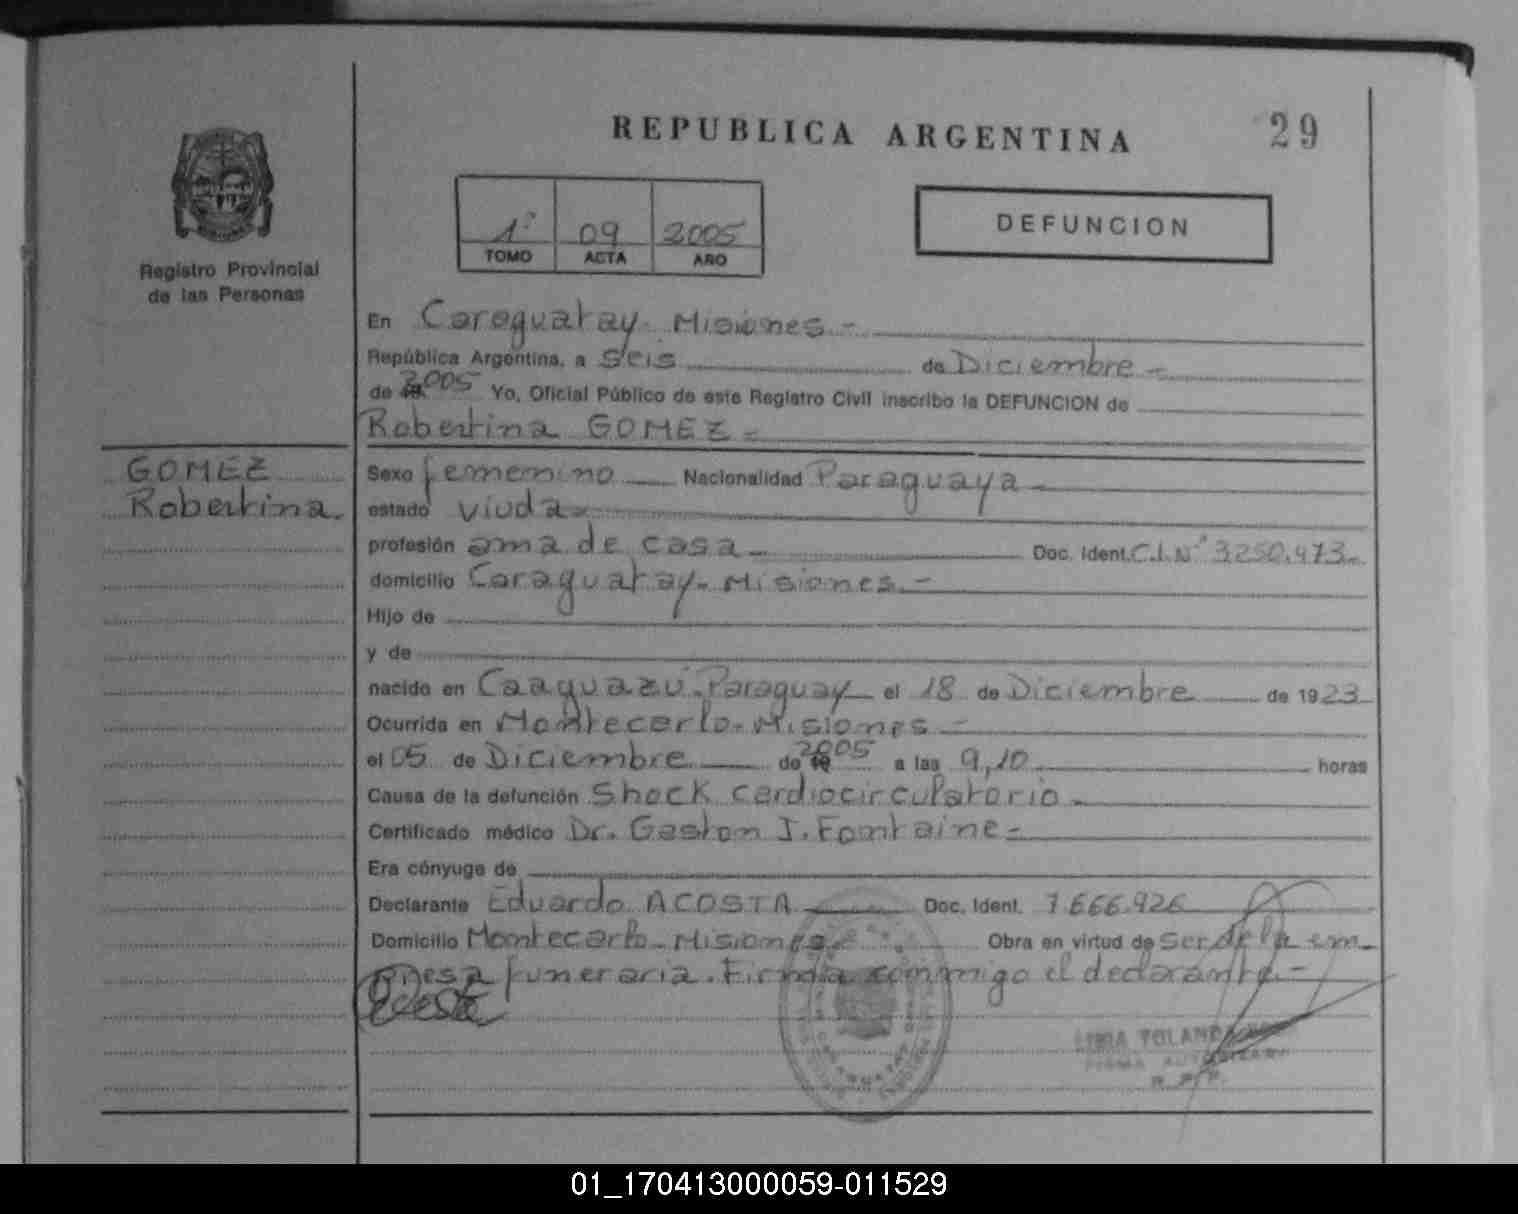 REPUBLICA ARGENTINA
29
Registro Provincial
de las Personas
1º 09 2005
TOMO ACTA AÑO
DEFUNCION
En Caraguatay - Misiones -
República Argentina, a Seis de Diciembre -
de 19 2005 Yo, Oficial Público de este Registro Civil inscribo la DEFUNCION de
Robertina GOMEZ -
GOMEZ
Robertina.
Sexo femenino Nacionalidad Paraguaya -
estado viuda -
profesión ama de casa - Doc. Ident. C.I.Nº 3250.973 -
domicilio Caraguatay - Misiones -
Hijo de
y de
nacido en Caaguazú - Paraguay el 18 de Diciembre de 1923
Ocurrida en Montecarlo - Misiones -
el 05 de Diciembre de 19 2005 a las 9,10 horas
Causa de la defunción Shock cardiocirculatorio -
Certificado médico Dr. Gaston J. Fontaine -
Era cónyuge de
Declarante Eduardo ACOSTA Doc. Ident. 7.666.926
Domicilio Montecarlo - Misiones - Obra en virtud de Ser de la em-
presa funeraria. Firma conmigo el declarante -
YOLANDA
FIRMA AUTORIZADA
R. P. P.
01_170413000059-011529